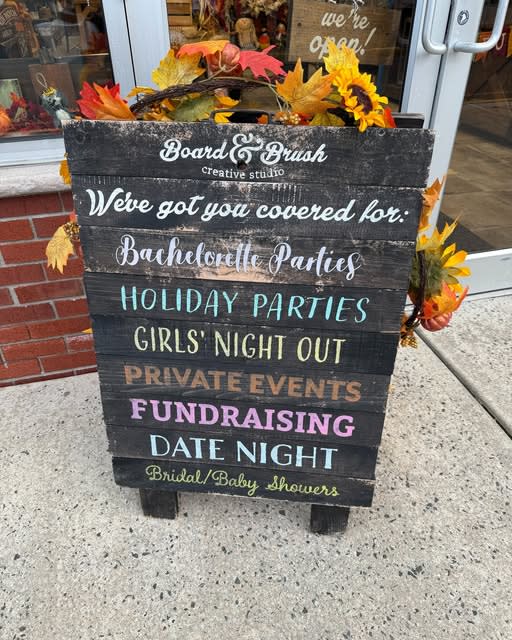 we're
open!
Board & Brush
creative studio
We've got you covered for:
Bachelorette Parties
HOLIDAY PARTIES
GIRLS' NIGHT OUT
PRIVATE EVENTS
FUNDRAISING
DATE NIGHT
Bridal/Baby Showers